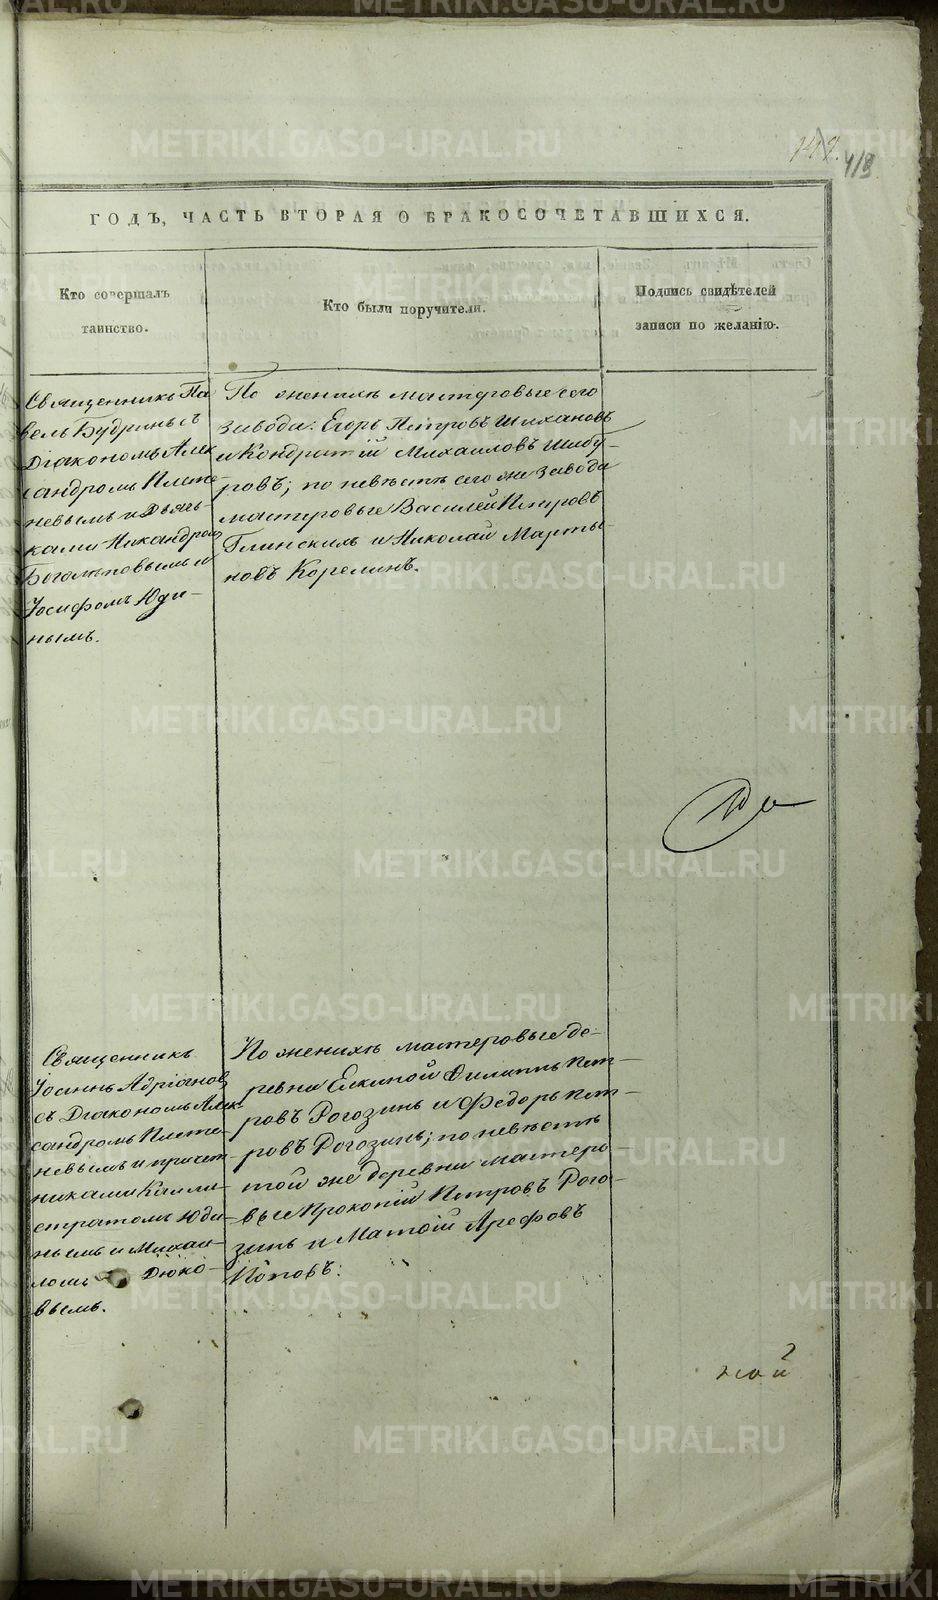 418
ГОДЪ, ЧАСТЬ ВТОРАЯ О БРАКОСОЧЕТАВШИХСЯ.
Кто совершалъ
таинство.
Кто были поручители.
Подпись свидѣтелей
записи по желанію.
Священникъ Па
велъ Будринъ съ
Діакономъ Алек
сандромъ Плете
невымъ и Дьячь-
ками Никандромъ
Боголѣповымъ и
Іосифомъ Юди-
нымъ.
По женихѣ мастеровые сего
завода: Егоръ Петровъ Шихановъ
и Кондратій Михаиловъ Шабу-
ровъ; по невѣстѣ сего же завода
мастеровые Василей Петровъ
Глинскихъ и Николай Марты
новъ Корелинъ.
Священникъ
Іоаннъ Адріановъ
съ Діакономъ Алек
сандромъ Плете-
невымъ и причет
никами Калли-
стратомъ Юди-
нымъ и Михаи-
ломъ Дюко-
вымъ.
По женихѣ мастеровые де-
ревни Елкиной Филиппъ Пет-
ровъ Рогозинъ и Федоръ Пет-
ровъ Рогозинъ; по невѣстѣ
той же деревни мастеро-
вые Прокопій Петровъ Рого-
зинъ и Матѳій Арефовъ
Поповъ.
METRIKI.GASO-URAL.RU